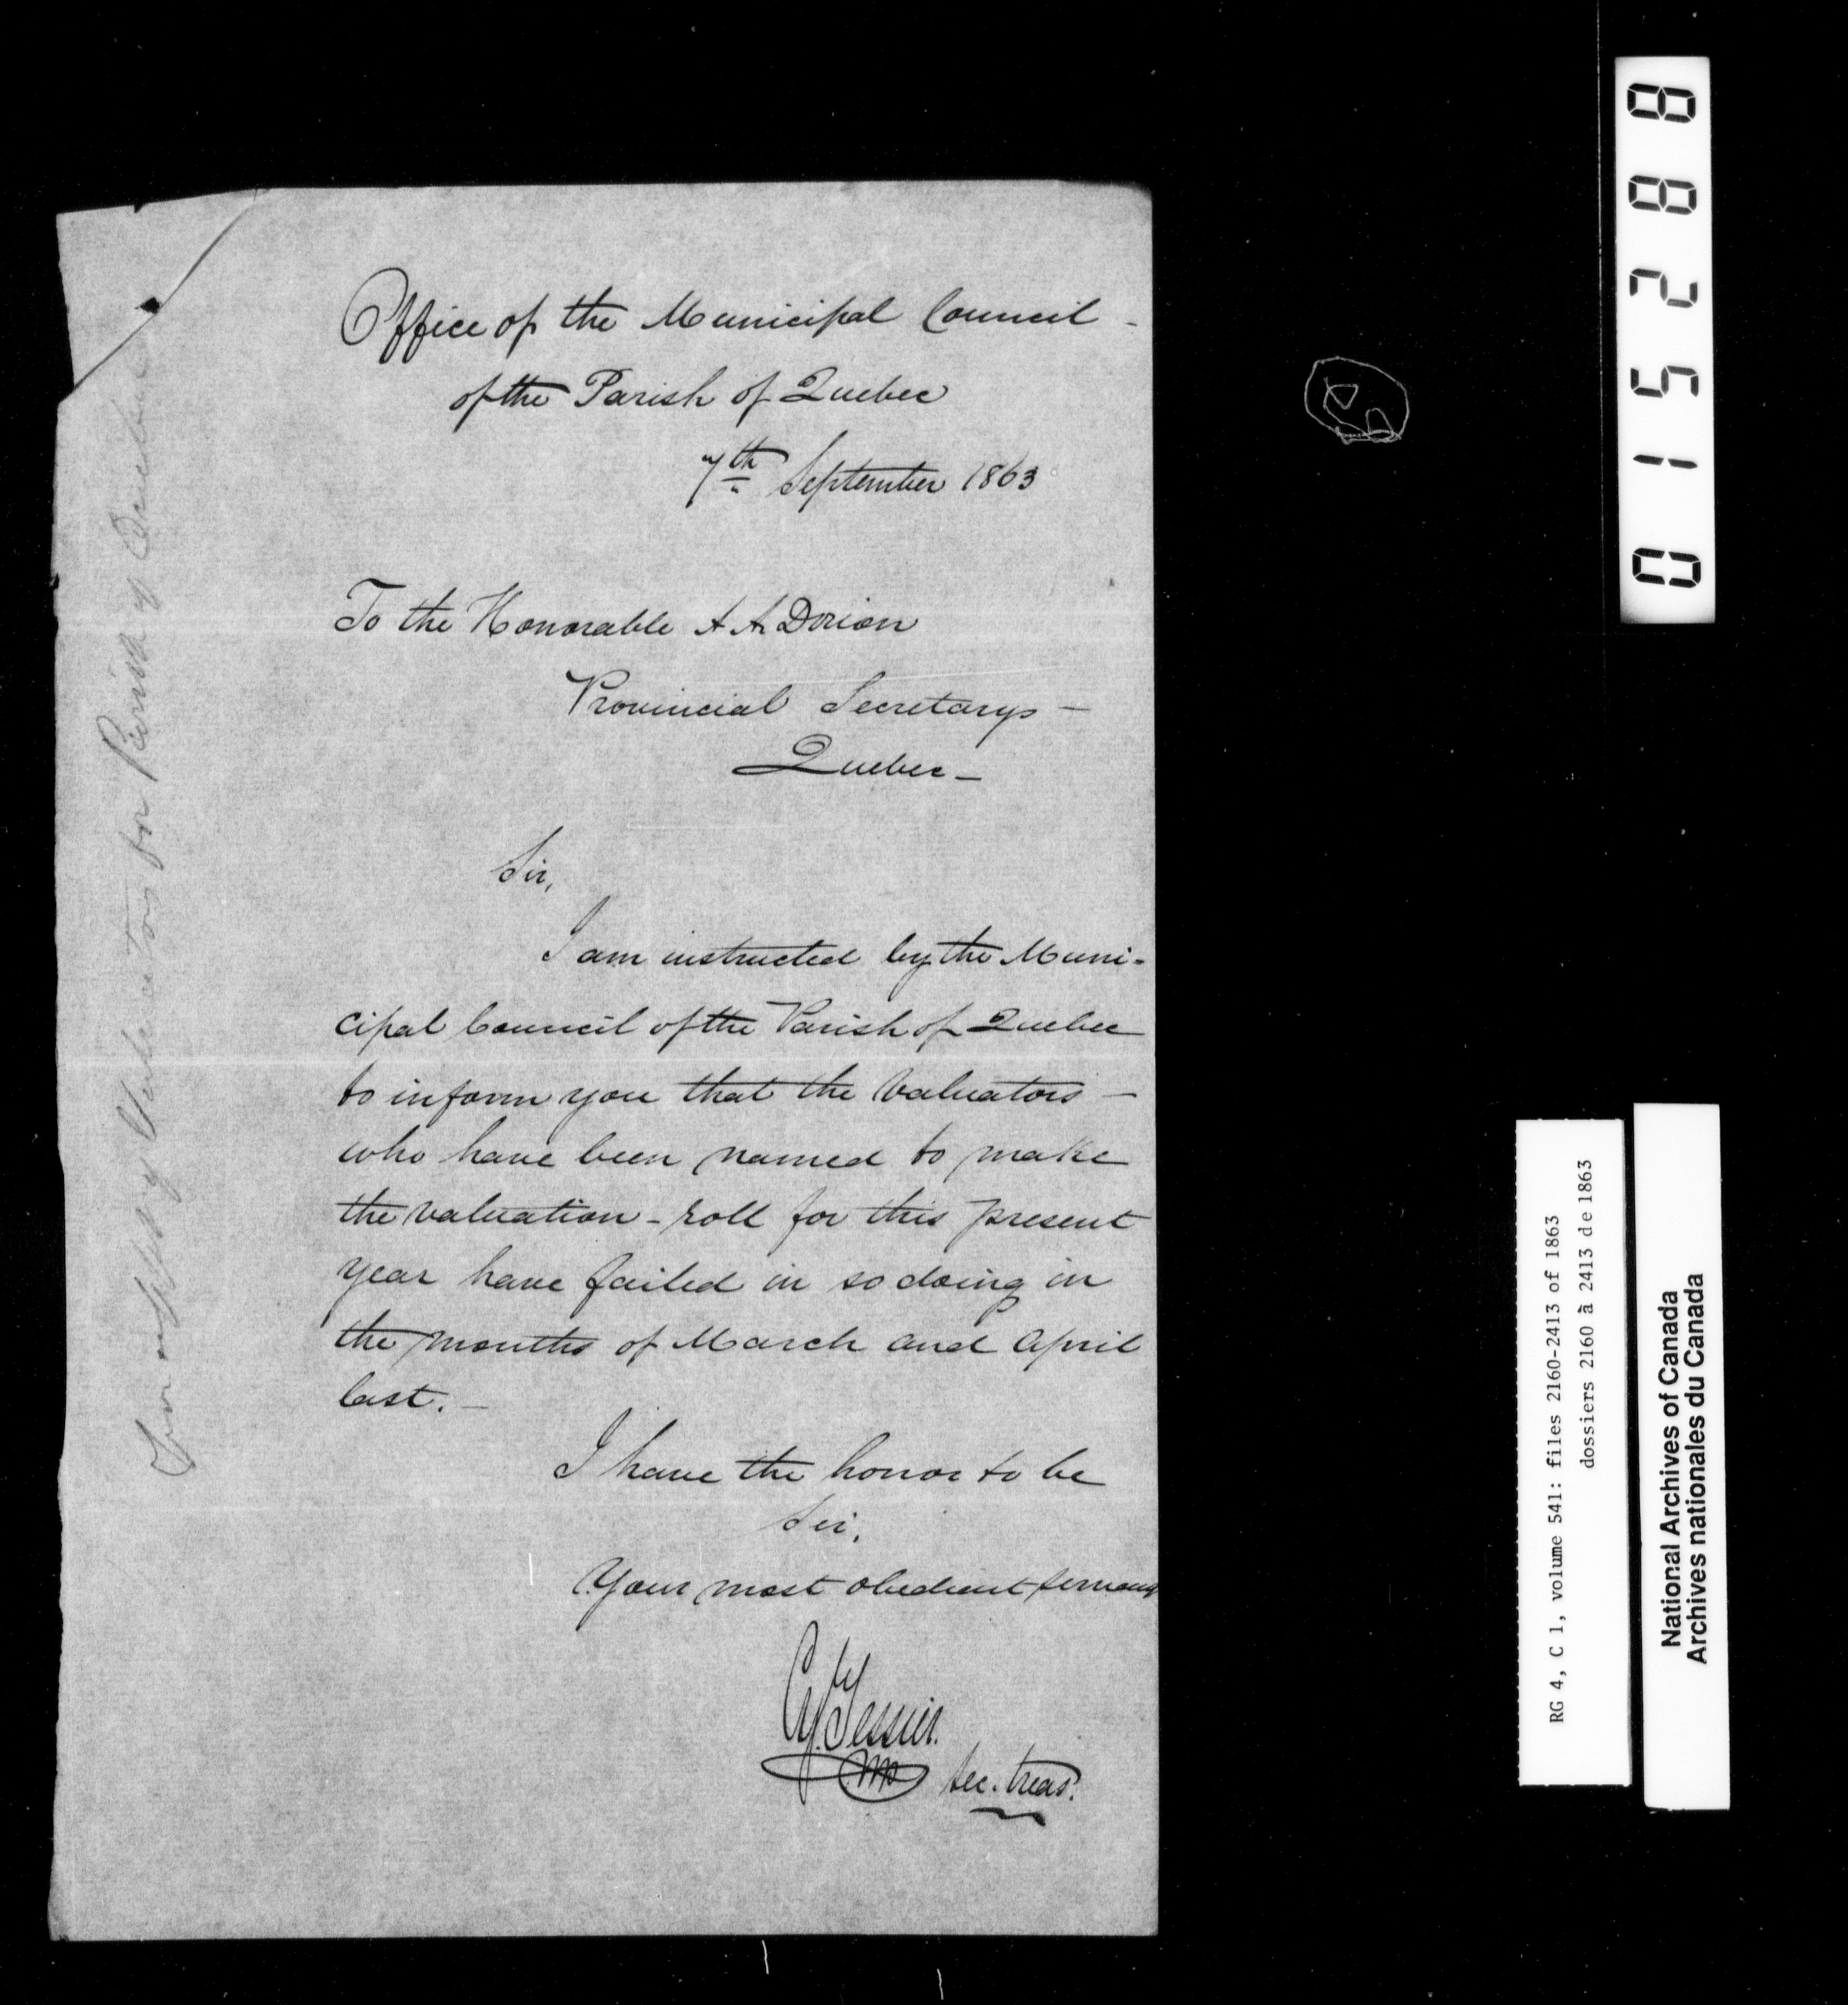 Office of the Municipal Council -
of the Parish of Quebec
7th September 1863
To the Honorable A A Dorion
Provincial Secretary -
Quebec -
Sir,
I am instructed by the Muni-
cipal Council of the Parish of Quebec
to inform you that the Valuators -
who have been named to make
the valuation-roll for this present
year have failed in so doing in
the months of March and April
last. -
I have the honor to be
Sir,
Your most obedient servant
Cy. Tessier.
Sec. treas.
Valuators for Parish of Quebec
015288
RG 4, C 1, volume 541: files 2160-2413 of 1863
dossiers 2160 à 2413 de 1863
National Archives of Canada
Archives nationales du Canada